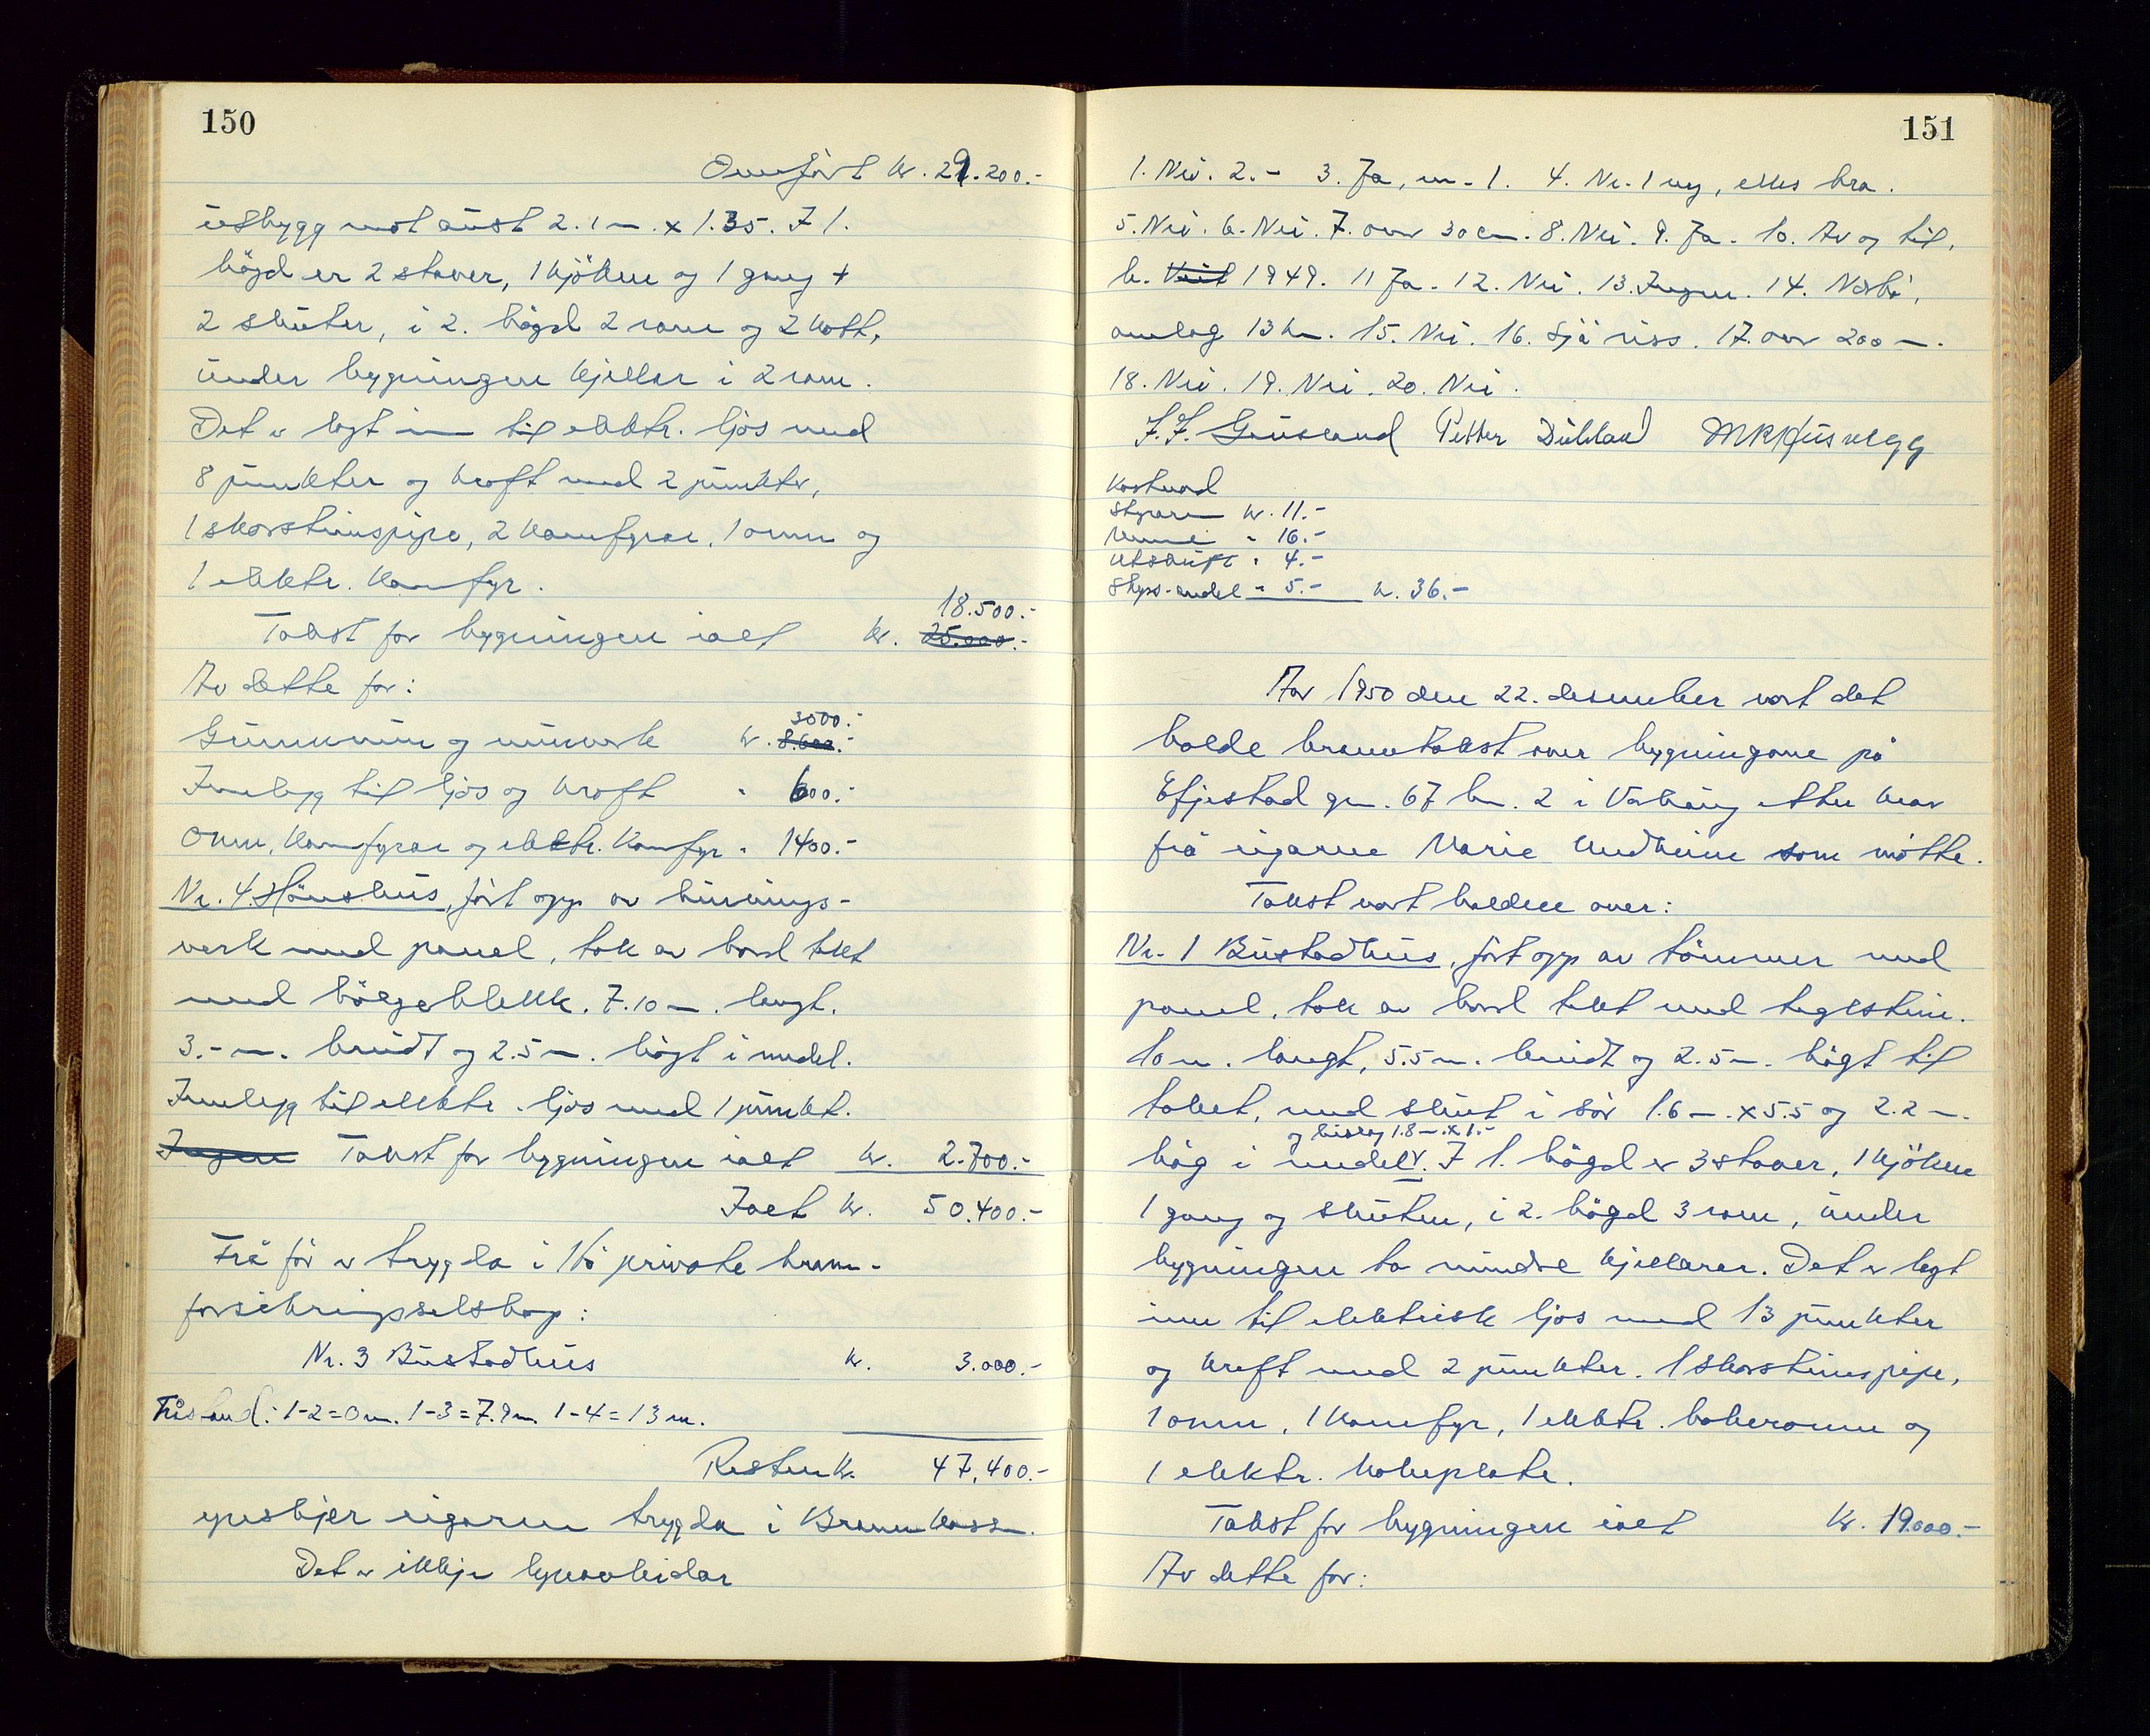 150
Omfört kr. 29.200.-
utbygg mot aust 2.1 m. x 1.35. I 1.
högd er 2 stover, 1 kjöken og 1 gang +
2 skuter, i 2. högd 2 rom og 2 kott,
under bygningen kjellar i 2 rom.
Det er lagt inn til elektr. ljos med
8 punkter og kraft med 2 punkter,
1 skorsteinspipe, 2 komfyrar, 1 omn og
1 elektr. komfyr.
18.500.-
Takst for bygningen ialt kr. 25.000.-
Av dette for:
3000.-
Grunnmur og murverk kr. 8.600.-
Innlegg til ljos og kraft " 600.-
Omn, komfyrar og elektr. komfyr " 1400.-
Nr. 4 Hönsehus, fört opp av bindings-
verk med panel, tak av bord tekt
med bölgeblekk. 7.10 m. langt.
3.- m. breidt og 2.5 m. högt i medel.
Innlegg til elektr. ljos med 1 punkt.
Ingen Takst for bygningen ialt kr. 2.700.-
Ialt kr. 50.400.-
Frå för er trygda i 16 private brann-
forsikringsselskap:
Nr. 3 Bustadhus kr. 3.000.-
Fråstand: 1-2=0 m. 1-3=7.9 m. 1-4=13 m.
Resten kr. 47.400.-
ynskjer eigaren trygda i Brannkassa.
Det er ikkje lynavleidar
151
1. Nei. 2.- 3. Ja, nr. 1. 4. Nr. 1 ny, elles bra.
5. Nei. 6. Nei. 7. over 30 cm. 8. Nei. 9. Ja. 10. Av og til,
b. Veit 1949. 11 Ja. 12. Nei. 13. Ingen. 14. Norbö,
omlag 13 km. 15. Nei. 16. Sjå riss. 17. over 200 m.
18. Nei. 19. Nei. 20. Nei.
J. J. Grüsland Petter Dübland MRHusvegg
Kostnad
Styraren kr. 11.-
Menn " 16.-
Utskrift " 4.-
Skyss-andel " 5.- kr. 36.-
År 1950 den 22. desember vart det
halde branntakst over bygningane på
Efjestad gn. 67 bn. 2 i Varhaug etter krav
frå eigaren Marie Undheim som mötte.
Takst vart halden over:
Nr. 1 Bustadhus, fört opp av tömmer med
panel, tak av bord tekt med teglstein.
10 m. langt, 5.5 m. breidt og 2.5 m. högt til
taket, med skut i sör 1.6 m. x 5.5 og 2.2 m.
og bislag 1.8 m. x 1.-
hög i medel. I 1. högd er 3 stover, 1 kjöken
1 gang og skuten, i 2. högd 3 rom, under
bygningen to mindre kjellarar. Det er lagt
inn til elektrisk ljos med 13 punkter
og kraft med 2 punkter. 1 skorsteinspipe,
1 omn, 1 komfyr, 1 elektr. bakeromn og
1 elektr. kokeplate.
Takst for bygningen ialt kr. 19.000.-
Av dette for: